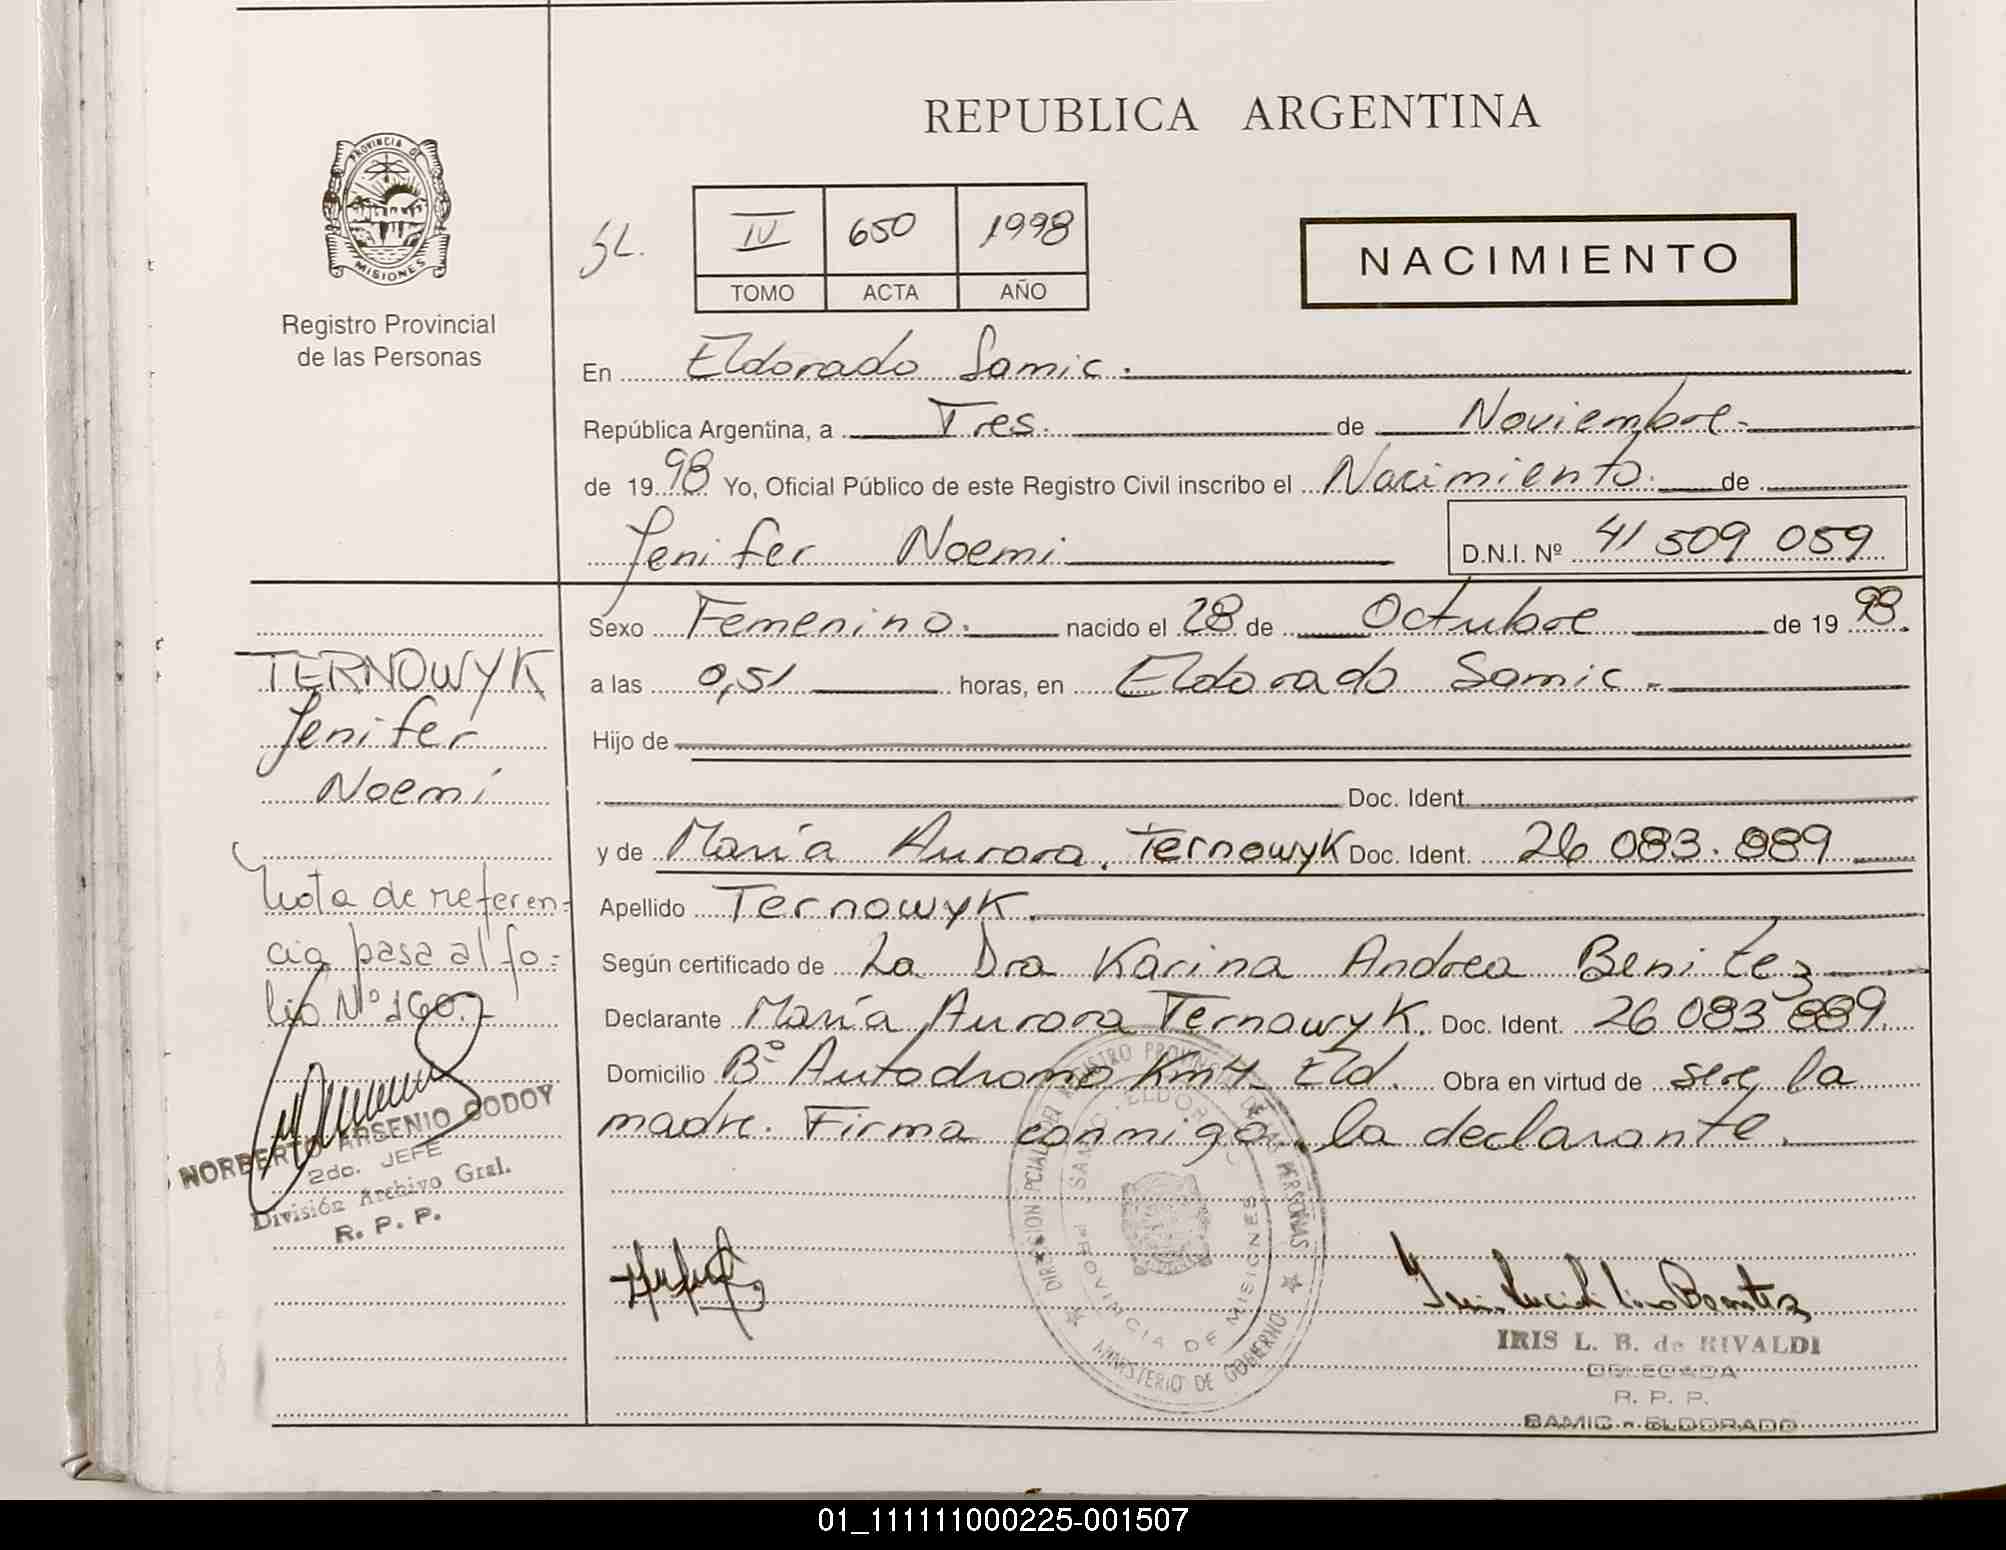 REPUBLICA ARGENTINA
PROVINCIA DE
MISIONES
Registro Provincial
de las Personas
SL.
IV 650 1998
TOMO ACTA AÑO
NACIMIENTO
En Eldorado Samic.
República Argentina, a Tres. de Noviembre.
de 1998 Yo, Oficial Público de este Registro Civil inscribo el Nacimiento. de
Jenifer Noemi D.N.I. Nº 41 509 059
Sexo Femenino. nacido el 28 de Octubre de 1998.
a las 0,51 horas, en Eldorado Samic.
Hijo de
Doc. Ident.
y de María Aurora. Ternowyk Doc. Ident. 26 083.889
Apellido Ternowyk.
Según certificado de La Dra Karina Andrea Benitez
Declarante María Aurora Ternowyk. Doc. Ident. 26 083 889.
Domicilio Bº Autodromo Km 4. Eld. Obra en virtud de ser la
madre. Firma conmigo. la declarante.
TERNOWYK
Jenifer
Noemí
Nota de referen=
cia pasa al fo=
lio Nº 160.-
NORBERTO ARSENIO GODOY
2do. JEFE
División Archivo Gral.
R. P. P.
DIRECCION PCIAL DEL REGISTRO PROVINCIAL DE LAS PERSONAS
SAMIC - ELDORADO
PROVINCIA DE MISIONES
MINISTERIO DE GOBIERNO
IRIS L. B. de RIVALDI
DELEGADA
R. P. P.
SAMIC - ELDORADO
01_111111000225-001507